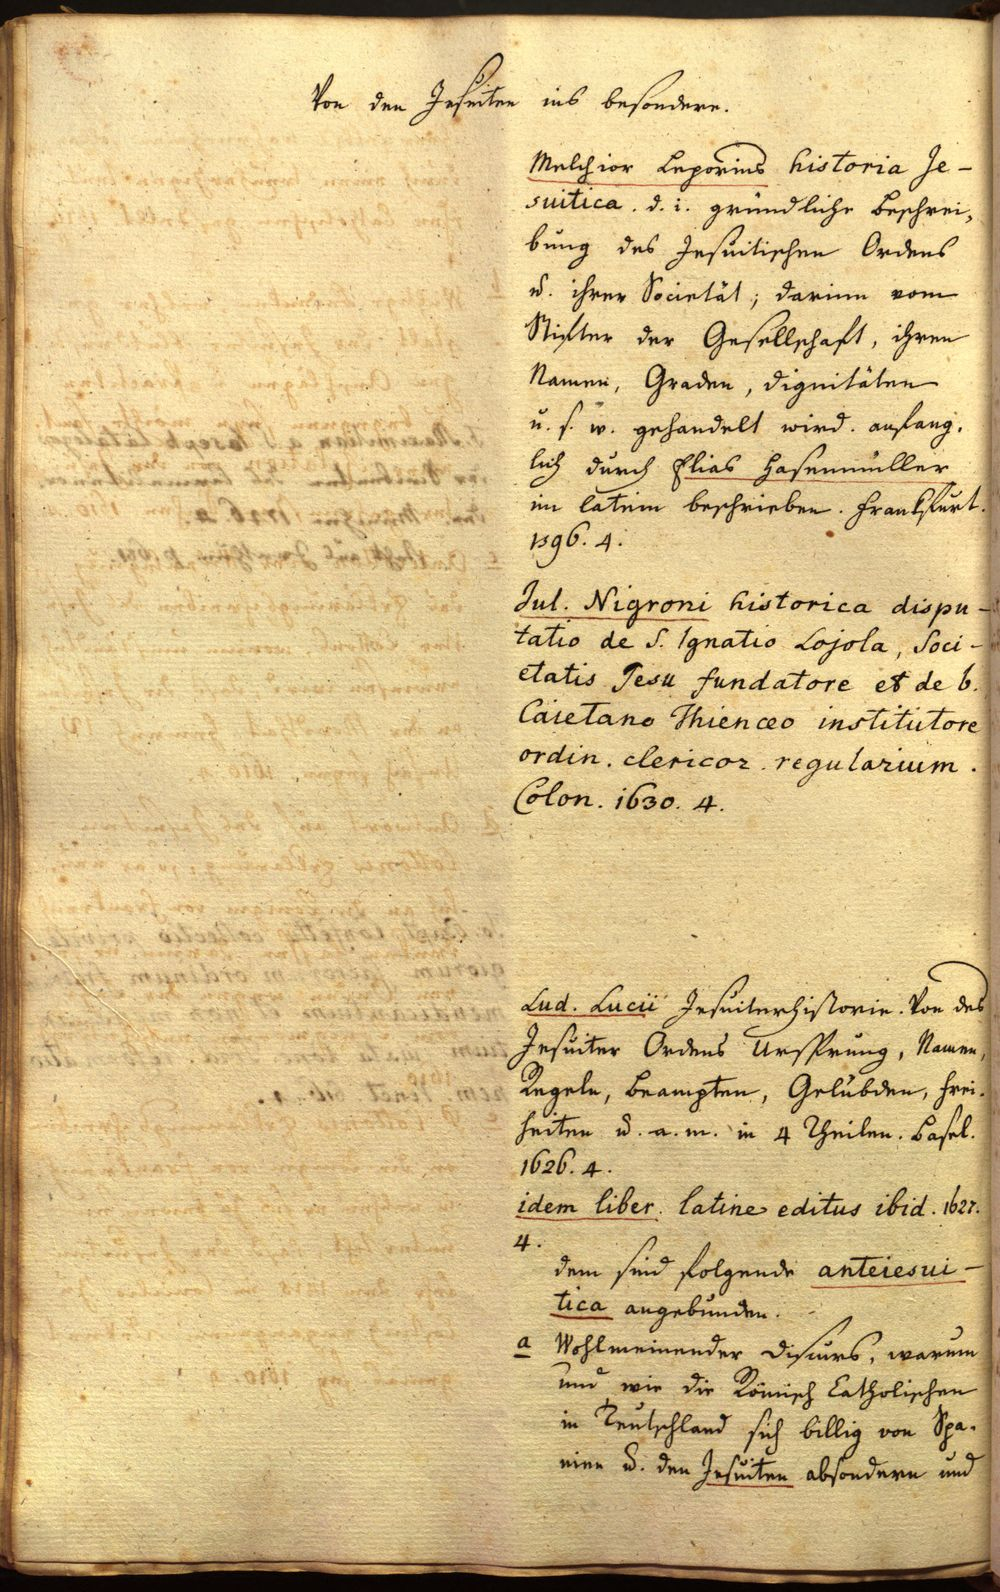 Von den Jesuiten ins besondere.
Melchior Leporins historia Je-
suitica. d. i. gründliche Beschrei-
bung des Jesuitischen Ordens
u. ihrer Societät; darinn vom
Stifter der Gesellschaft, ihren
Namen, Graden, Dignitäten
u. s. w. gehandelt wird. anfäng-
lich durch Elias Hasenmüller
im latein beschrieben. Frankfurt.
1596. 4.
Jul. Nigroni historica dispu-
tatio de S. Ignatio Lojola, Soci-
etatis Jesu fundatore et de b.
Caietano Thienæo institutore
ordin. clericor. regularium.
Colon. 1630. 4.
Lud. Lucii Jesuiterhistorie. Von des
Jesuiter Ordens Ursprung, Namen,
Regeln, Beampten, Gelübden, Frei-
heiten u. a. m. in 4 Theilen. Basel.
1626. 4.
idem liber. latine editus ibid. 1627.
4.
dem sind folgende anteiesui-
tica angebunden.
a Wohlmeinender Discurs, warum
und wie die Römisch Catholischen
in Teutschland sich billig von Spa-
nien u. den Jesuiten absondern und